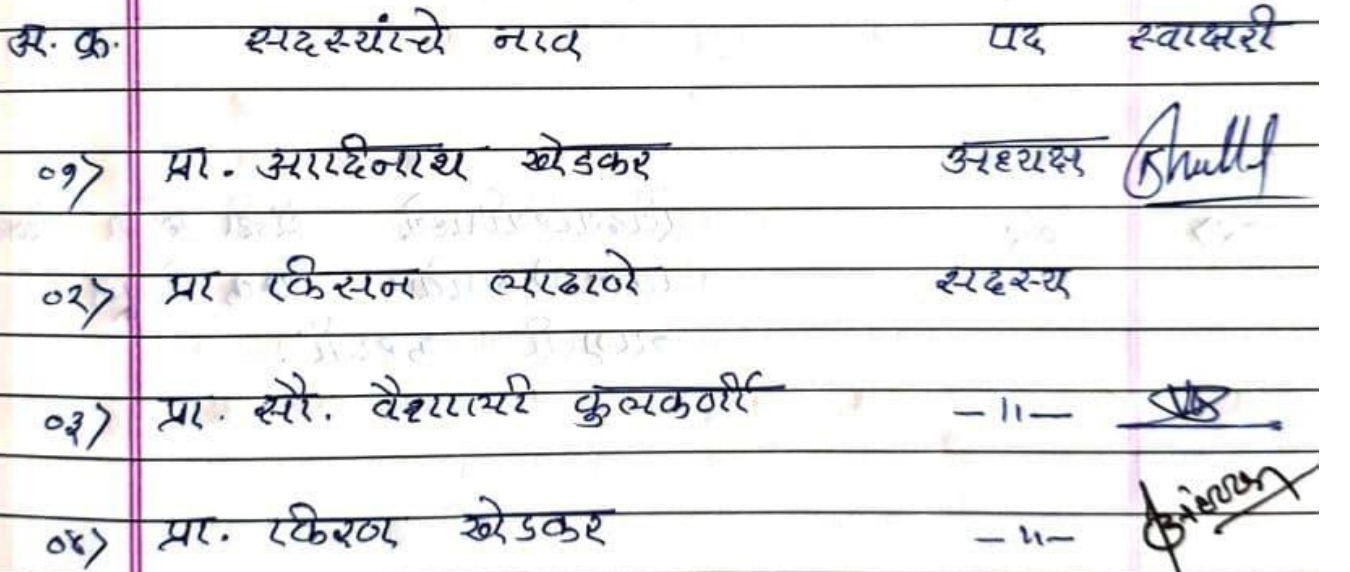 अ. क्र. सदस्यांचे नाव पद स्वाक्षरी
०१) प्रा. आदिनाथ खेडकर अध्यक्ष
०२) प्रा किसन लाढाणे सदस्य
०३) प्रा. सौ. वैशाली कुलकर्णी —॥—
०४) प्रा. किरण खेडकर —॥—